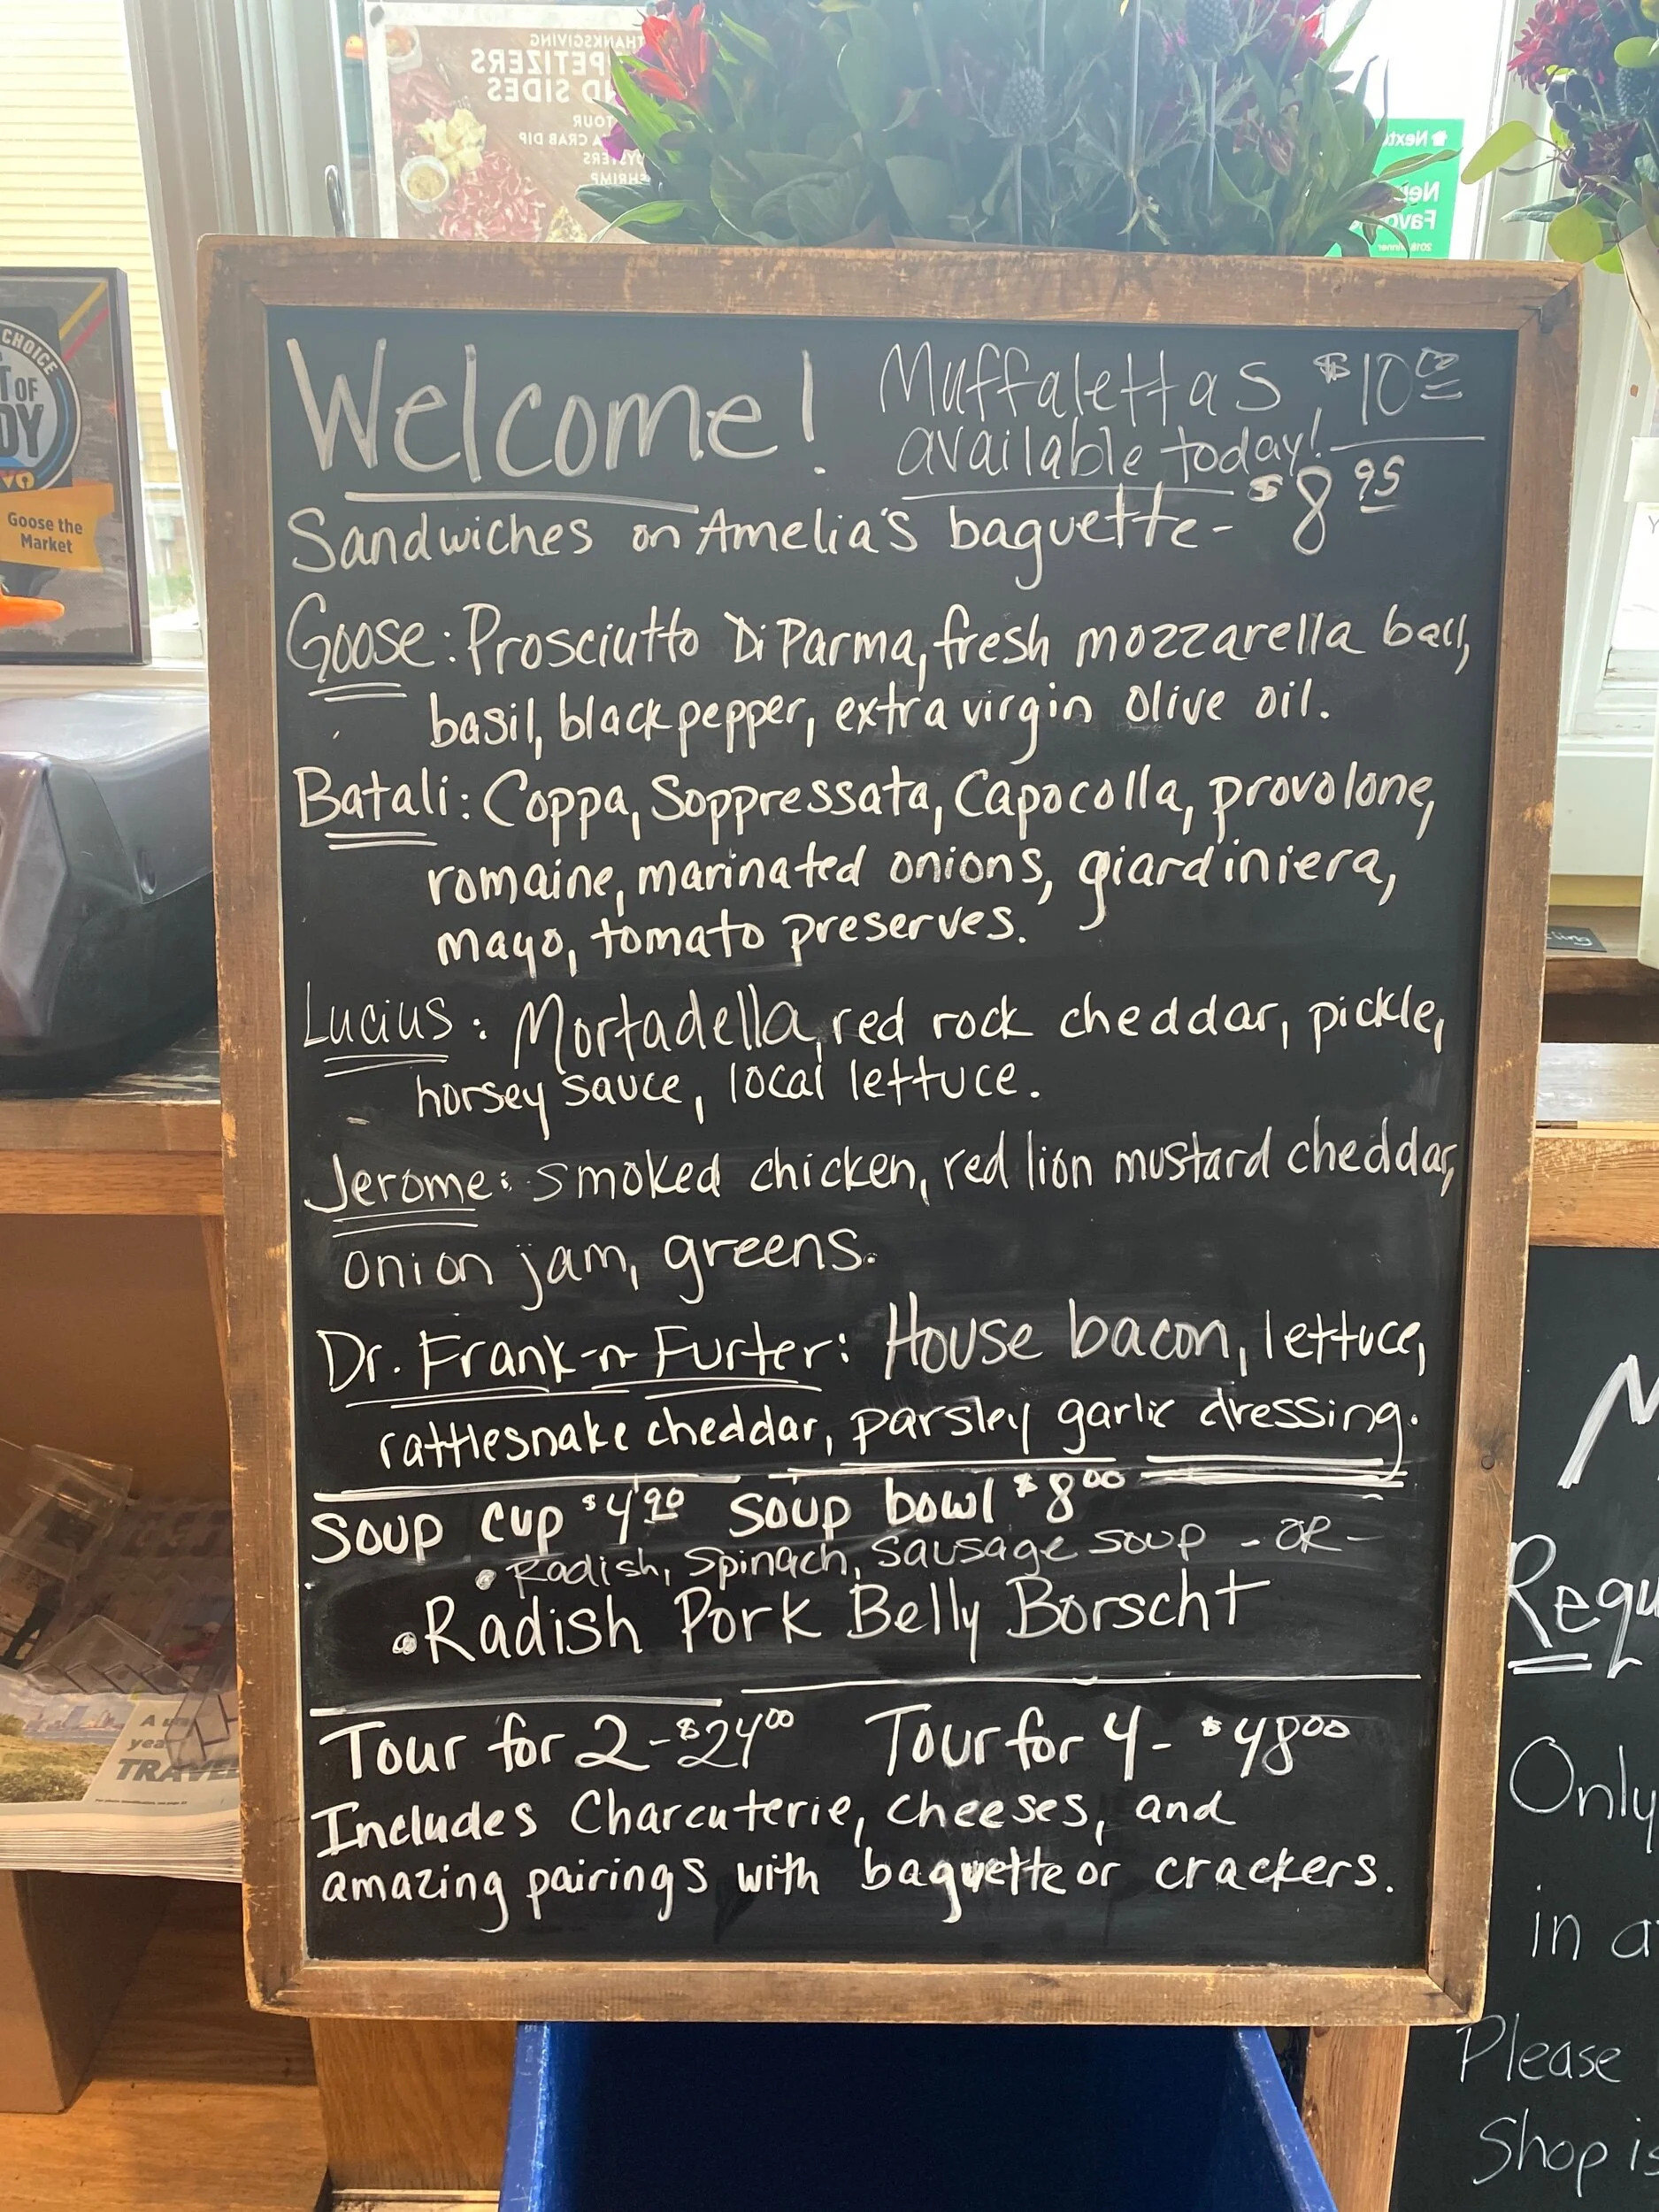 THANKSGIVING
PETIZERS
ND SIDES
TOUR
A CRAB DIP
OYSTERS
SHRIMP
CHOICE
OF
DY
Goose the
Market
Welcome! Muffalettas $10.00
available today!
Sandwiches on Amelia's baguette- $8.95
Goose: Prosciutto Di Parma, fresh mozzarella ball,
basil, black pepper, extra virgin olive oil.
Batali: Coppa, Soppressata, Capocolla, provolone,
romaine, marinated onions, giardiniera,
mayo, tomato preserves.
Lucius: Mortadella, red rock cheddar, pickle,
horsey sauce, local lettuce.
Jerome: smoked chicken, red lion mustard cheddar,
onion jam, greens.
Dr. Frank-n-Furter: House bacon, lettuce,
rattlesnake cheddar, parsley garlic dressing.
Soup cup $4.90 Soup bowl $8.00
• Radish, Spinach, Sausage soup -OR-
• Radish Pork Belly Borscht
Tour for 2-$24.00 Tour for 4- $48.00
Includes Charcuterie, cheeses, and
amazing pairings with baguette or crackers.
TRAVEL
Requ
Only
in a
Please
Shop is